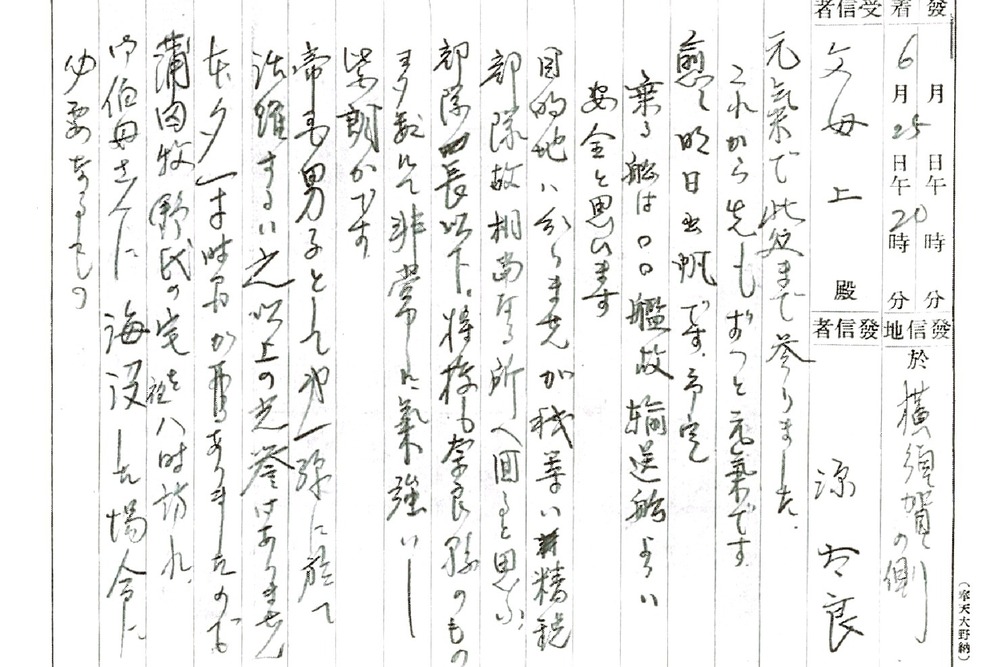 發 月 日午 時 分 發信地 於 横須賀の側
着 6月25日午20時 分
受信者 父母上殿 發信者 源 太良
元氣で此処まで参りました。
これから先もずっと元氣です
愈々明日出帆です、予定
乗る船は〇〇艦故輸送船よりハ
安全と思ひます
目的地ハ分りませんが我等ハ精鋭
部隊故相当なる所へ回ると思ふ、
部隊長以下、将校も奈良縣のもの
多数にて非常に氣強いー
柴朗かです
帝国男子として第一線に於て
活躍するハ之以上の光誉はありません
本夕一寸時間がありましたので
蒲田牧野氏の宅を夜八時訪れ
伯母さんに 海没した場合に
必要なるもの
(奉天大野納)